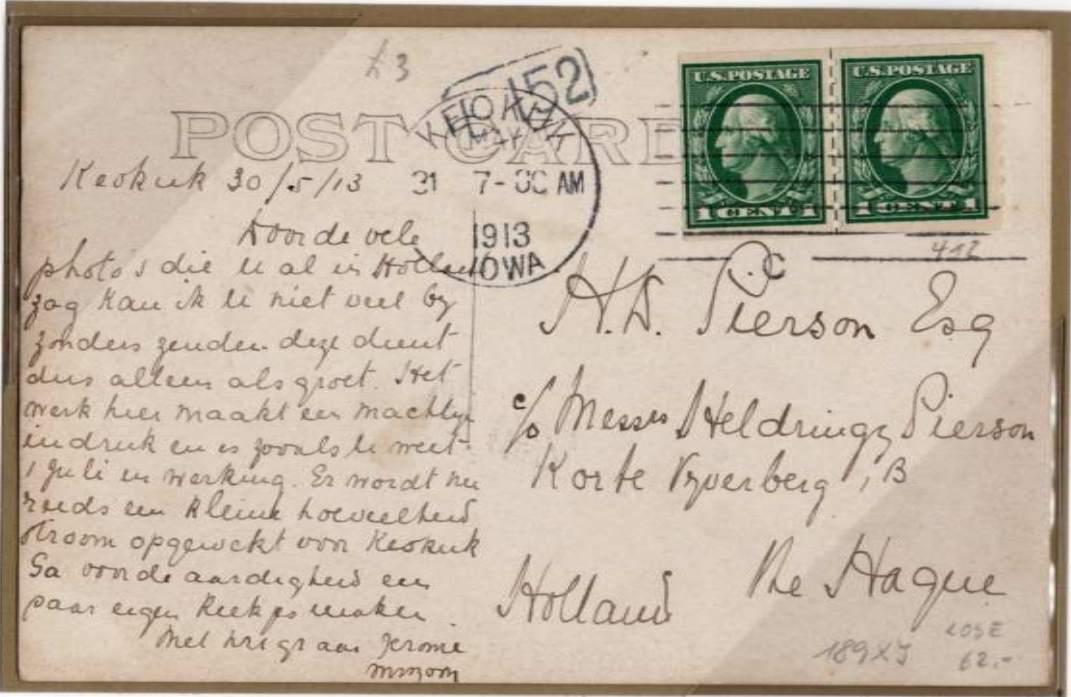 £3
152
POST CARD
KEOKUK
MAY
31 7-30 AM
1913
IOWA
U.S. POSTAGE
1 CENT 1
U.S. POSTAGE
1 CENT 1
412
Keokuk 30/5/13
Door de vele
photo's die U al in Holland
zag kan ik U niet veel by
zonders zenden deze dient
dus alleen als groet. Het
werk hier maakt een machtig
indruk en is zooals U weet
1 Juli in werking. Er wordt nu
reeds een kleine hoeveelheid
stroom opgewekt voor Keokuk
Ga voor de aardigheid een
paar eigen kiekjes maken
Met
H.D. Pierson Esq
c/o Messrs Heldring & Pierson
Korte Vyverberg, 1B
The Hague
Holland
189XJ
LOSE
62.-